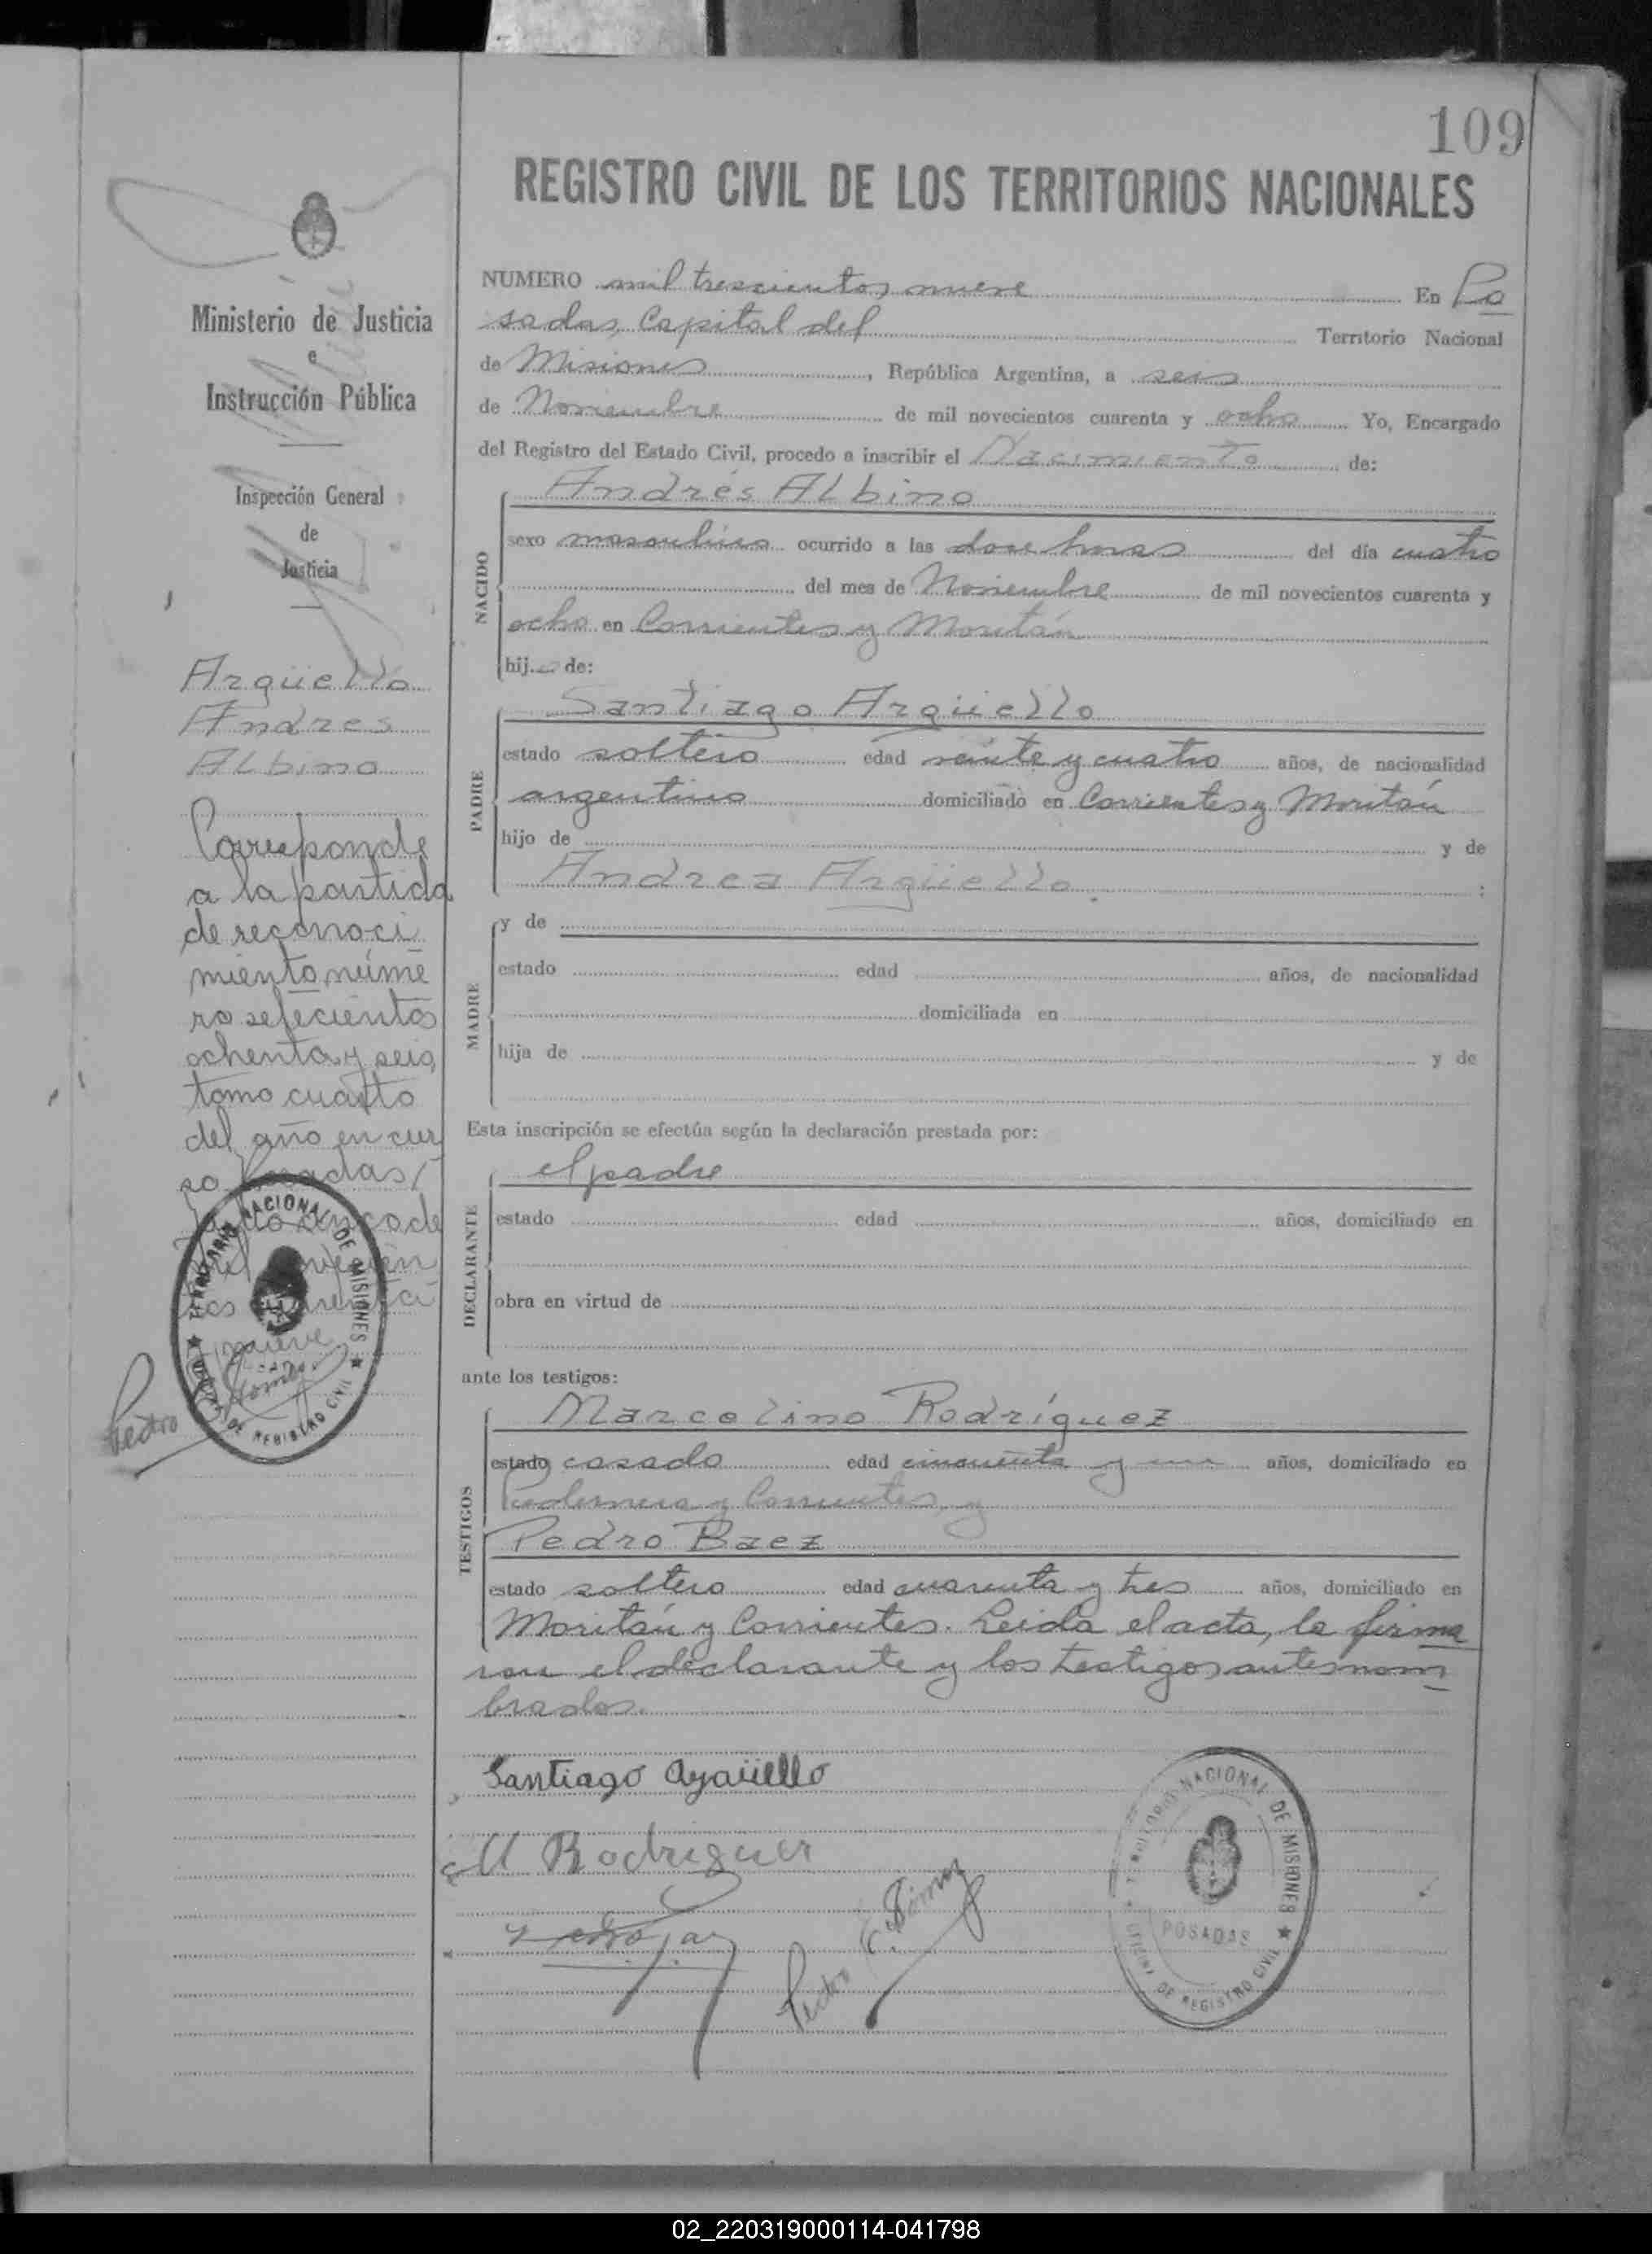 109
REGISTRO CIVIL DE LOS TERRITORIOS NACIONALES
Ministerio de Justicia
e
Instrucción Pública
Inspección General
de
Justicia
Argüello
Andres
Albino
Corresponde
a la partida
de reconoci
miento núme
ro setecientos
ochenta y seis,
tomo cuarto
del año en cur
so Posadas,
de
mil novecien
tos cuarenta
nueve
Pedro Gómez
TERRITORIO NACIONAL DE MISIONES
OFICINA DE REGISTRO CIVIL
NUMERO mil trescientos nueve En Po
sadas, Capital del Territorio Nacional
de Misiones, República Argentina, a seis
de Noviembre de mil novecientos cuarenta y ocho Yo, Encargado
del Registro del Estado Civil, procedo a inscribir el Nacimiento de:
NACIDO
Andrés Albino
sexo masculino ocurrido a las doce horas del día cuatro
del mes de Noviembre de mil novecientos cuarenta y
ocho en Corrientes y Moritán
hijo de:
PADRE
Santiago Argüello
estado soltero edad veinte y cuatro años, de nacionalidad
argentino domiciliado en Corrientes y Moritán
hijo de y de
Andrea Argüello.
MADRE
y de
estado edad años, de nacionalidad
domiciliada en
hija de y de
Esta inscripción se efectúa según la declaración prestada por:
DECLARANTE
el padre
estado edad años, domiciliado en
obra en virtud de
ante los testigos:
TESTIGOS
Marcelino Rodríguez
estado casado edad cincuenta y un años, domiciliado en
Pedernera y Corrientes, y
Pedro Baez
estado soltero edad cuarenta y tres años, domiciliado en
Moritán y Corrientes. Leida el acta, la firma
ron el declarante y los testigos antes nom
brados.
Santiago Argüello
M Rodriguez
Pedro E. Gómez
TERRITORIO NACIONAL DE MISIONES
POSADAS
OFICINA DE REGISTRO CIVIL
02_220319000114-041798